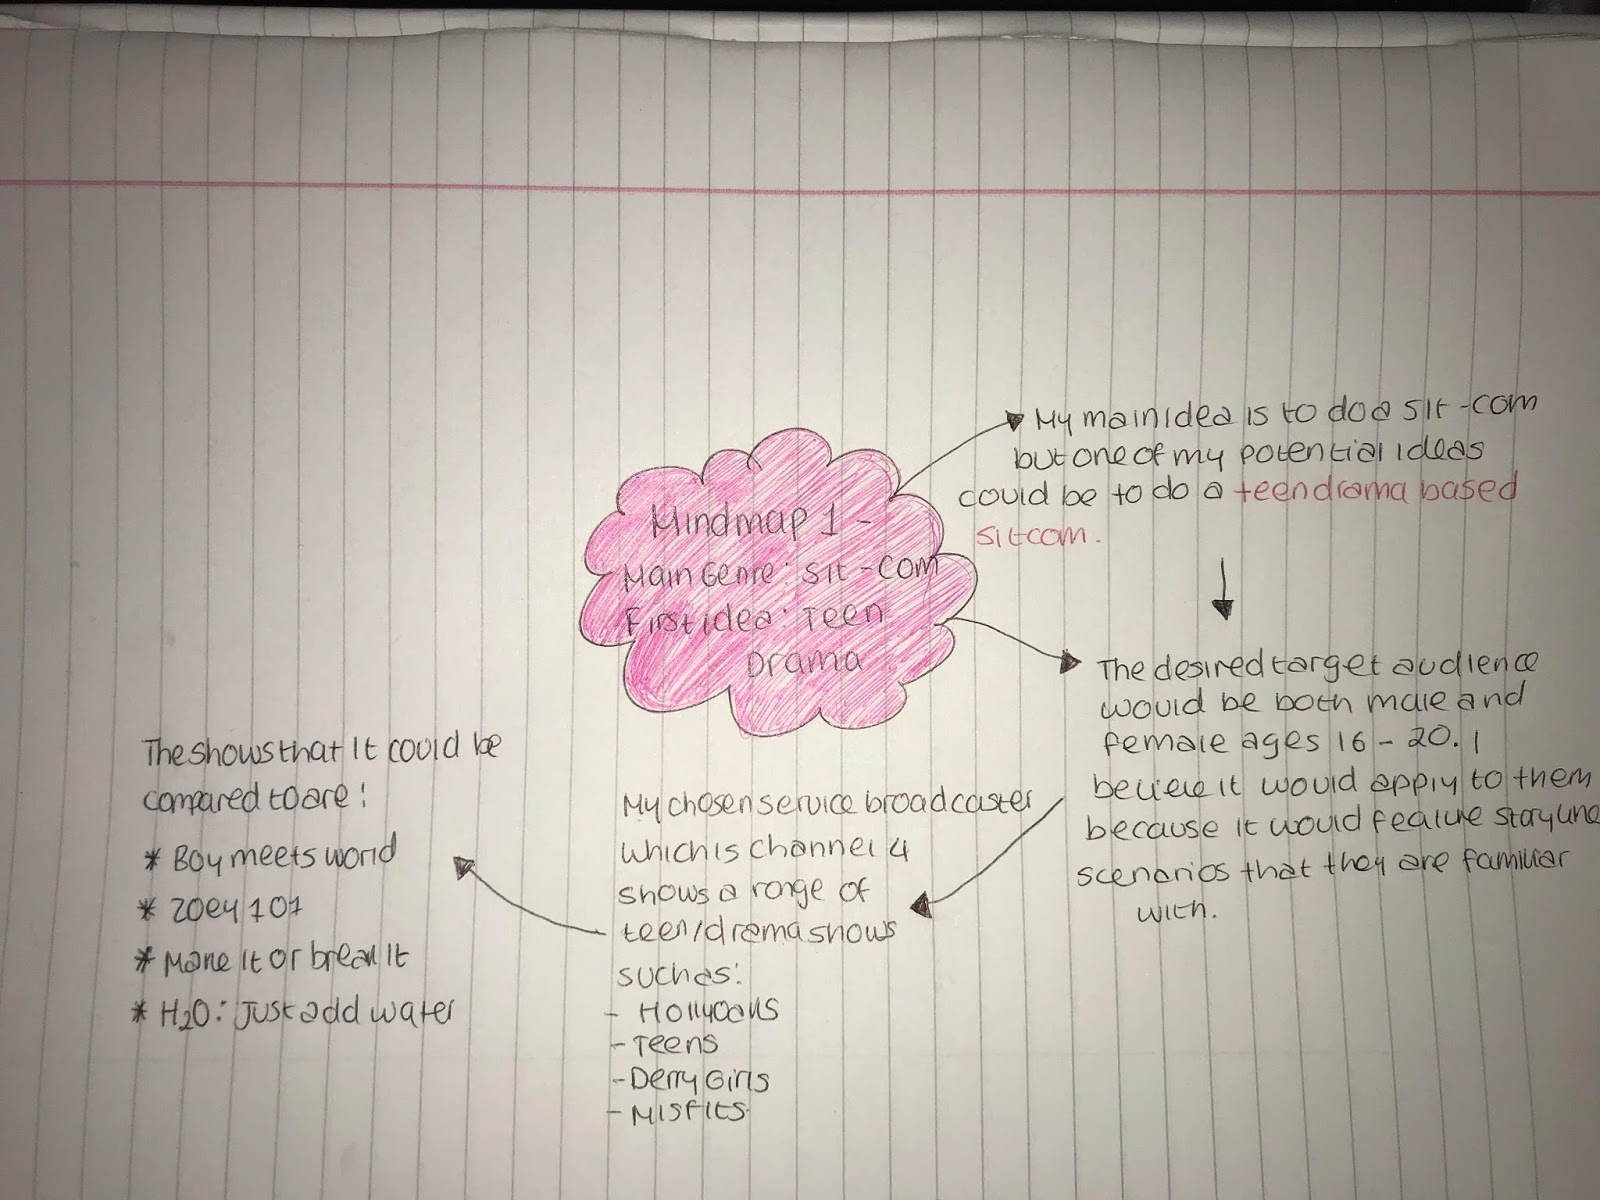 Mindmap 1 -
Main Genre: Sit-com
First idea: Teen
Drama
My main idea is to do a sit-com
but one of my potential ideas
could be to do a teen drama based
sitcom.
The desired target audience
would be both male and
female ages 16 - 20. I
believe it would apply to them
because it would feature storyline
scenarios that they are familiar
with.
My chosen service broadcaster
which is channel 4
shows a range of
teen/drama shows
such as:
- Hollyoaks
- Teens
- Derry Girls
- Misfits
The shows that it could be
compared to are:
* Boy meets world
* Zoey 101
* Make it or break it
* H2O: Just add water